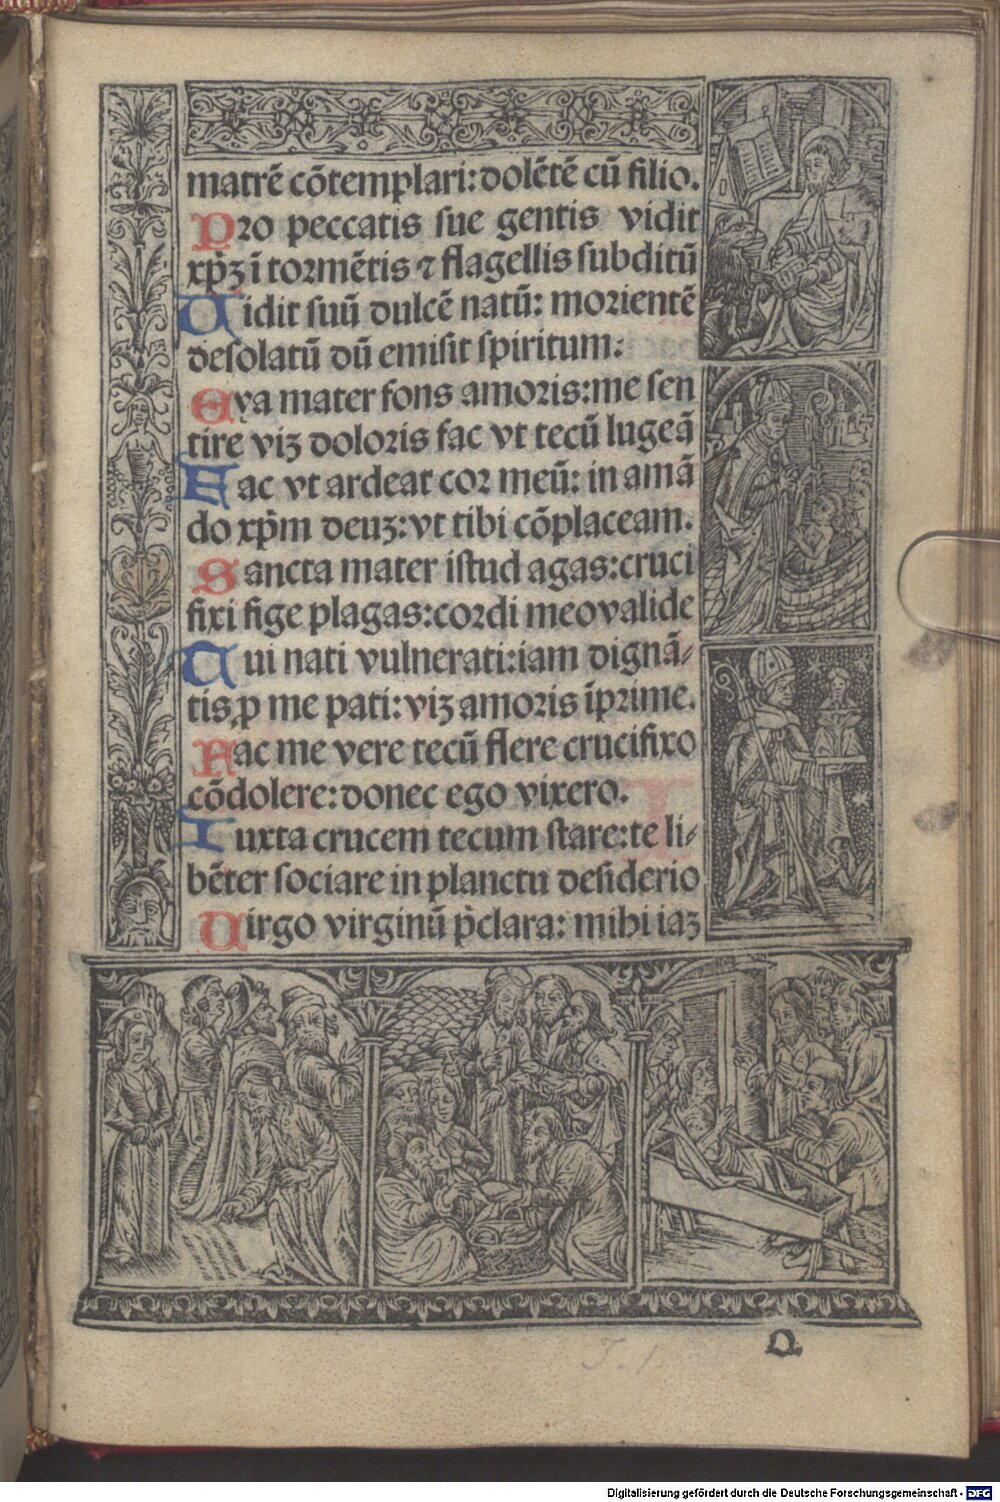 matrē cōtemplari: dolētē cū filio.
Pro peccatis sue gentis vidit
xp̄ꝫ ī tormētis ⁊ flagellis subditū
Uidit suū dulcē natū: morientē
desolatū dū emisit spiritum:
Eya mater fons amoris: me sen
tire viꝫ doloris fac vt tecū lugeā
Fac vt ardeat cor meū: in amā
do xp̄m deuꝫ: vt tibi cōplaceam.
Sancta mater istud agas: cruci
fixi fige plagas: cordi meo valide
Tui nati vulnerati: iam dignā⸗
tis ꝓ me pati: viꝫ amoris īprime.
Fac me vere tecū flere crucifixo
cōdolere: donec ego vixero.
Iuxta crucem tecum stare: te li⸗
bēter sociare in planctu desiderio
Uirgo virginū p̄clara: mihi iaꝫ
Digitalisierung gefördert durch die Deutsche Forschungsgemeinschaft - DFG